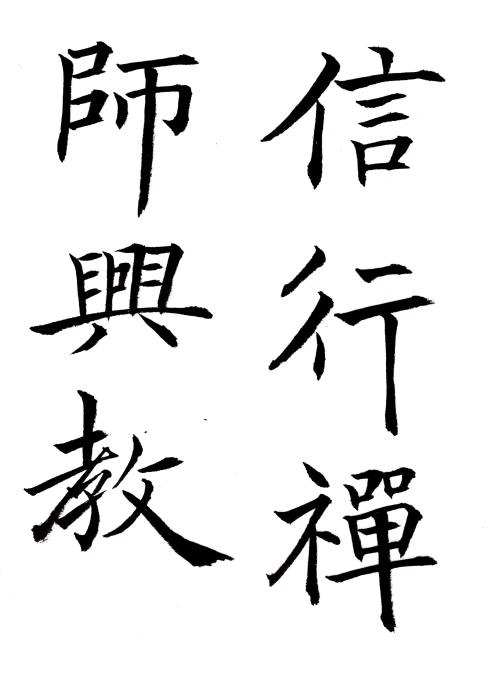 信行禪
師興教